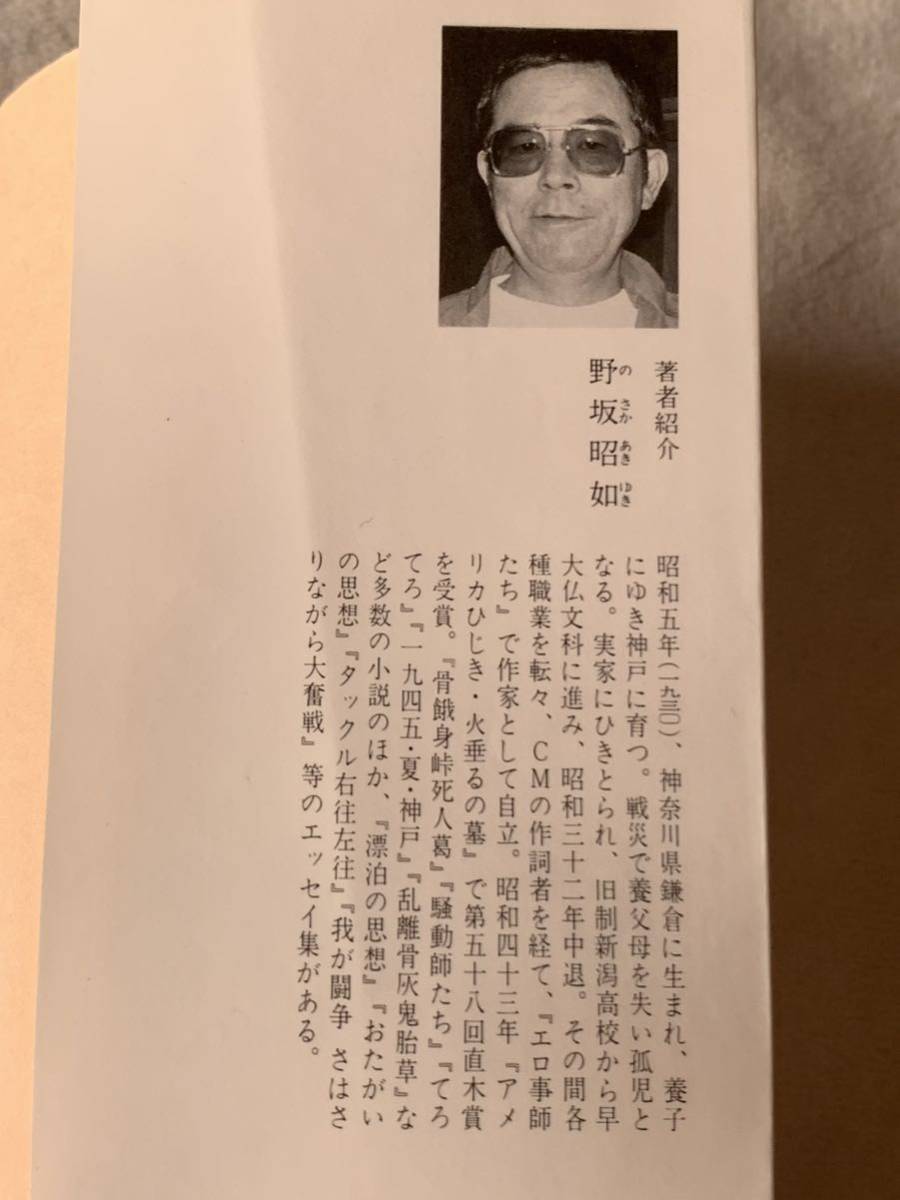 著者紹介
野坂昭如
のさかあきゆき
昭和五年(一九三〇)、神奈川県鎌倉に生まれ、養子
にゆき神戸に育つ。戦災で養父母を失い孤児と
なる。実家にひきとられ、旧制新潟高校から早
大仏文科に進み、昭和三十二年中退。その間各
種職業を転々、CMの作詞者を経て、『エロ事師
たち』で作家として自立。昭和四十三年『アメ
リカひじき・火垂るの墓』で第五十八回直木賞
を受賞。『骨餓身峠死人葛』『騒動師たち』『てろ
てろ』『一九四五・夏・神戸』『乱離骨灰鬼胎草』な
ど多数の小説のほか、『漂泊の思想』『おたがい
の思想』『タックル右往左往』『我が闘争 さはさ
りながら大奮戦』等のエッセイ集がある。